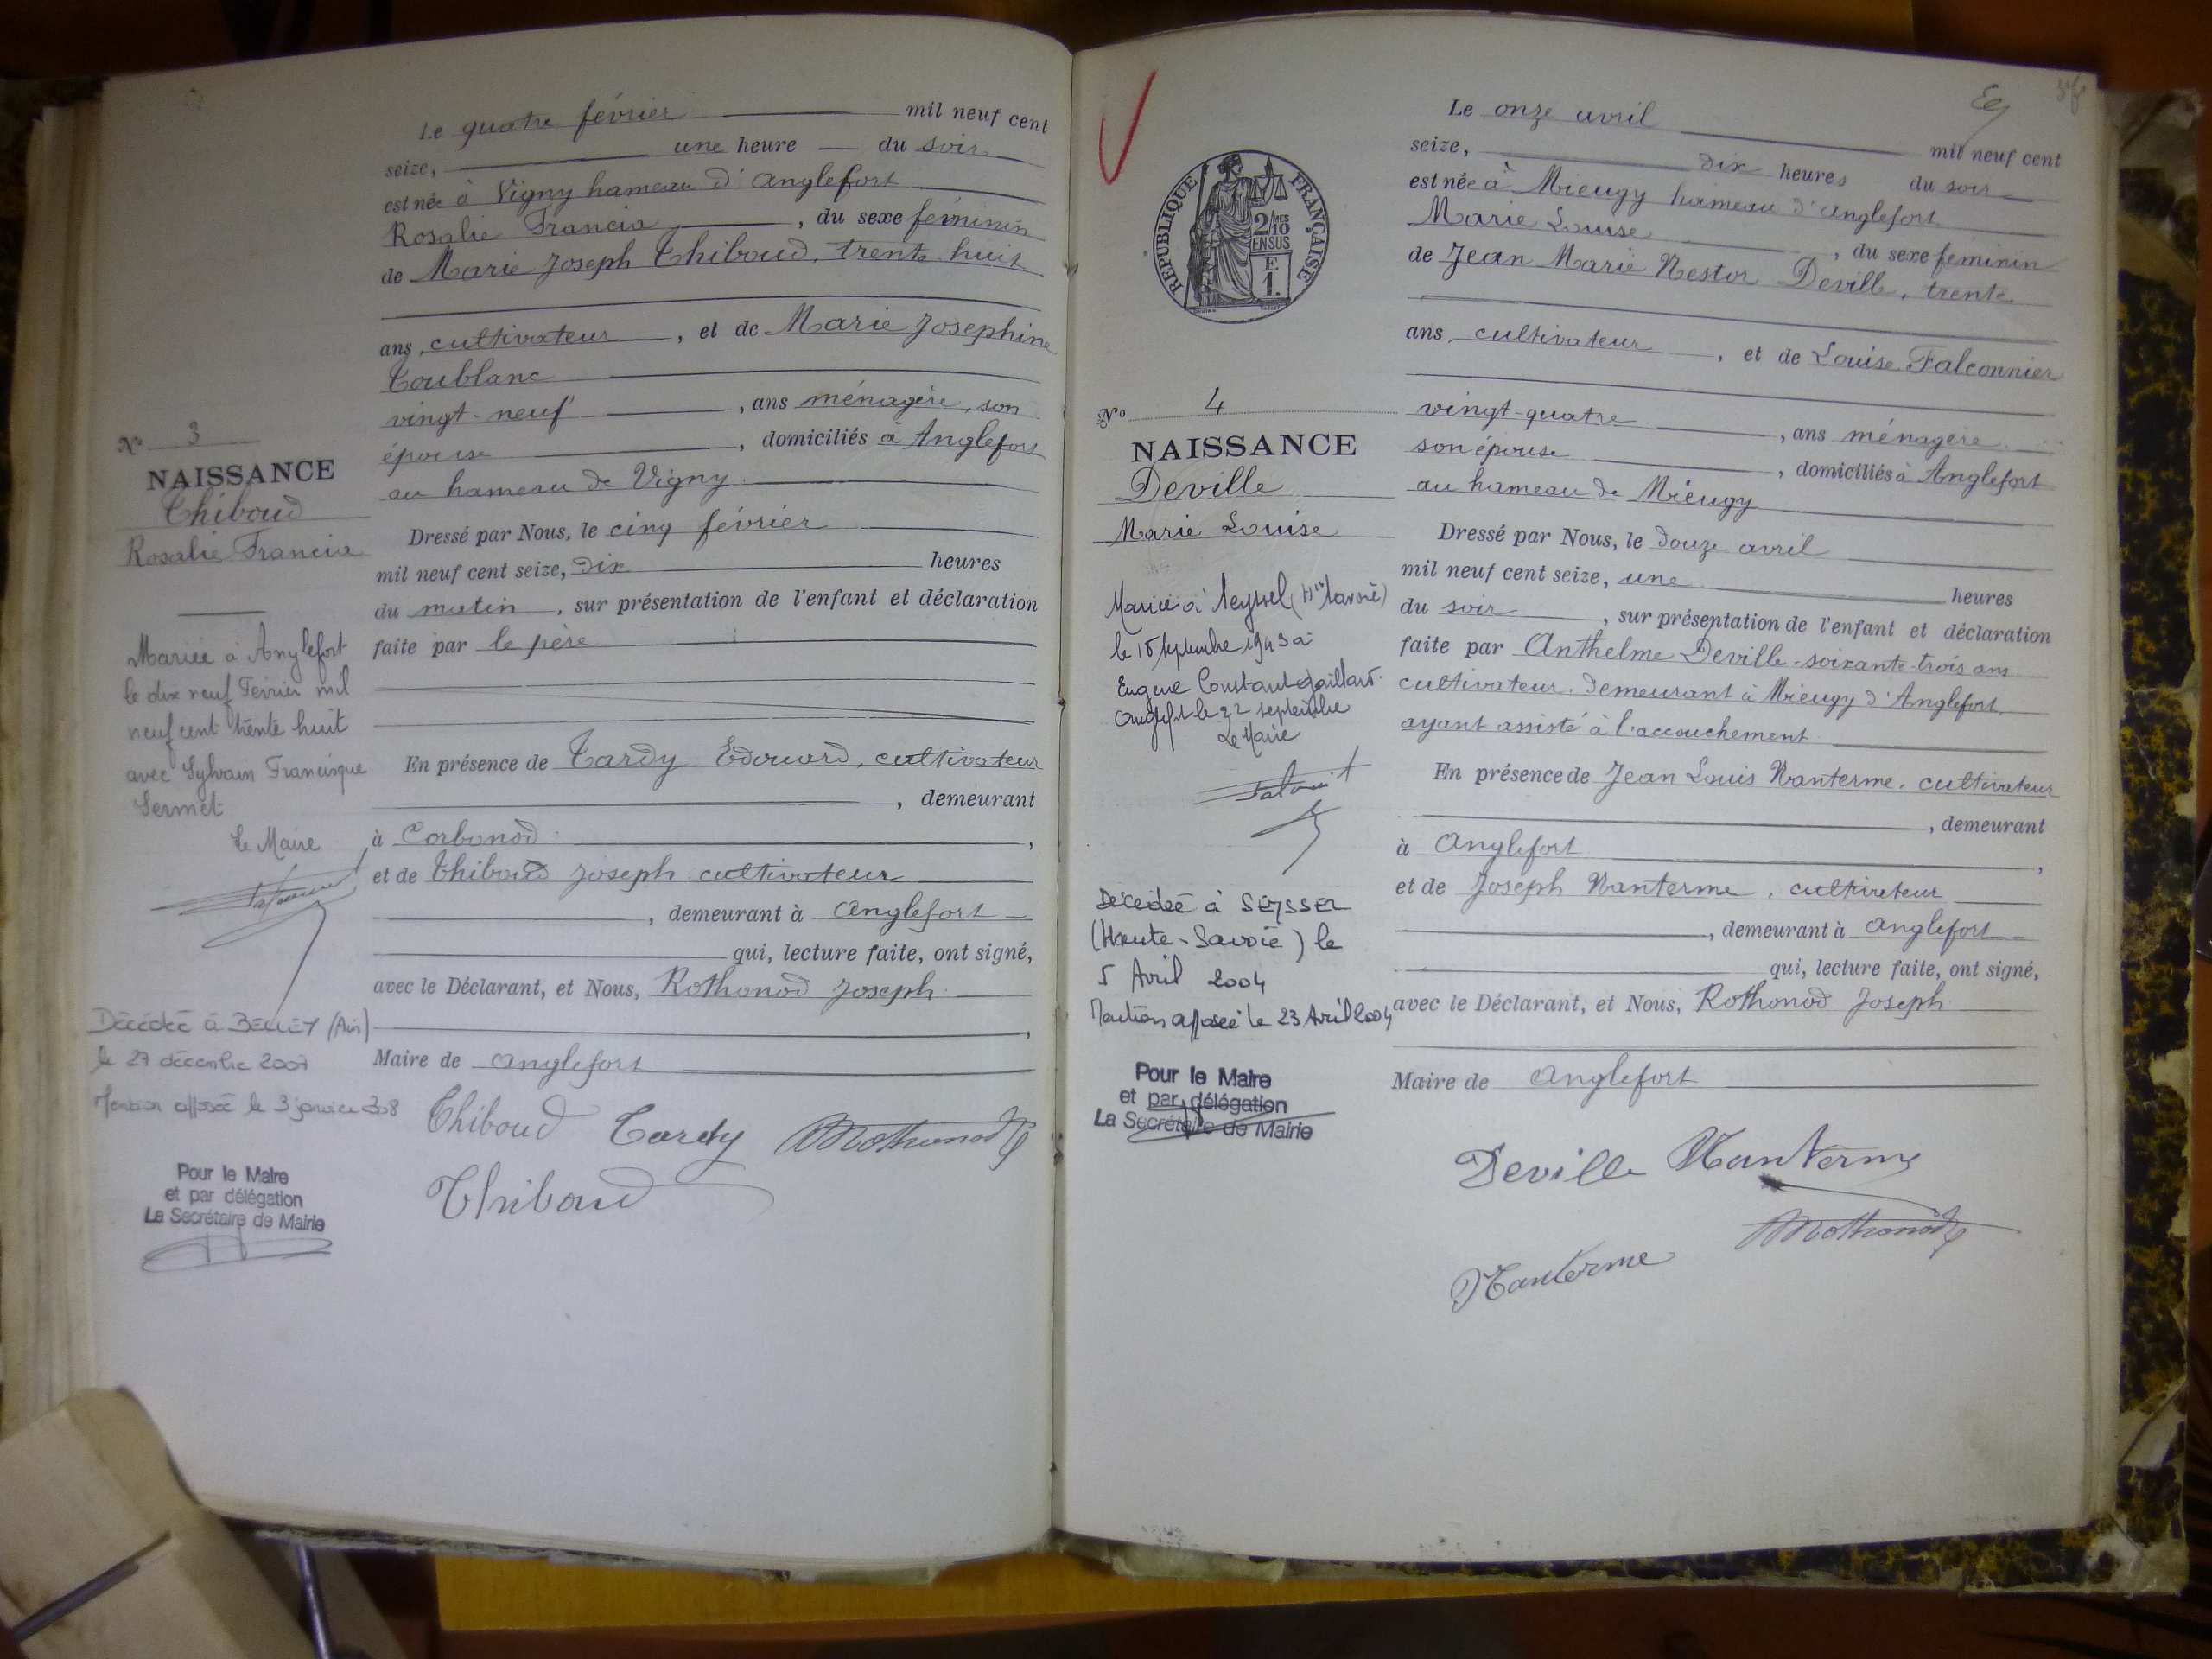 Le quatre février mil neuf cent
seize, une heure du soir
est née à Vigny hameau d'Anglefort
Rosalie Francia, du sexe féminin
de Marie Joseph Thiboud, trente huit
ans, cultivateur, et de Marie Josephine
Toublanc
vingt-neuf, ans ménagère, son
épouse, domiciliés à Anglefort
au hameau de Vigny
Dressé par Nous, le cinq février
mil neuf cent seize, dix heures
du matin, sur présentation de l'enfant et déclaration
faite par le père
En présence de Tardy Edouard, cultivateur
, demeurant
à Corbonod,
et de Thiboud Joseph cultivateur
, demeurant à Anglefort
qui, lecture faite, ont signé,
avec le Déclarant, et Nous, Rothonod Joseph
,
Maire de Anglefort
Thiboud Tardy Rothonod
Thiboud
No 3
NAISSANCE
Thiboud
Rosalie Francia
Mariée à Anglefort
le dix neuf Février mil
neuf cent trente huit
avec Sylvain Francisque
Sermet
Le Maire
Décédée à BELLEY (Ain)
le 27 décembre 2007
Mention apposée le 3 janvier 2008
Pour le Maire
et par délégation
La Secrétaire de Mairie
REPUBLIQUE FRANÇAISE
2/10 MES
EN SUS
F.
1.
No 4
NAISSANCE
Deville
Marie Louise
Mariée à Seyssel (Hte Savoie)
le 15 septembre 1943 à
Eugene Constant Gaillard
Anglefort le 22 septembre
Le Maire
Décédée à SEYSSEL
(Haute-Savoie) le
5 Avril 2004
Mention apposée le 23 Avril 2004
Pour le Maire
et par délégation
La Secrétaire de Mairie
Le onze avril mil neuf cent
seize, dix heures du soir
est née à Mieugy hameau d'Anglefort
Marie Louise, du sexe féminin
de Jean Marie Nestor Deville, trente
ans, cultivateur, et de Louise Falconnier
vingt-quatre, ans ménagère
son épouse, domiciliés à Anglefort
au hameau de Mieugy
Dressé par Nous, le douze avril
mil neuf cent seize, une heures
du soir, sur présentation de l'enfant et déclaration
faite par Anthelme Deville, soixante-trois ans
cultivateur, demeurant à Mieugy d'Anglefort
ayant assisté à l'accouchement
En présence de Jean Louis Nanterme, cultivateur
, demeurant
à Anglefort,
et de Joseph Nanterme, cultivateur
, demeurant à Anglefort
qui, lecture faite, ont signé,
avec le Déclarant, et Nous, Rothonod Joseph
Maire de Anglefort
Deville Nanterme
Rothonod
Nanterme